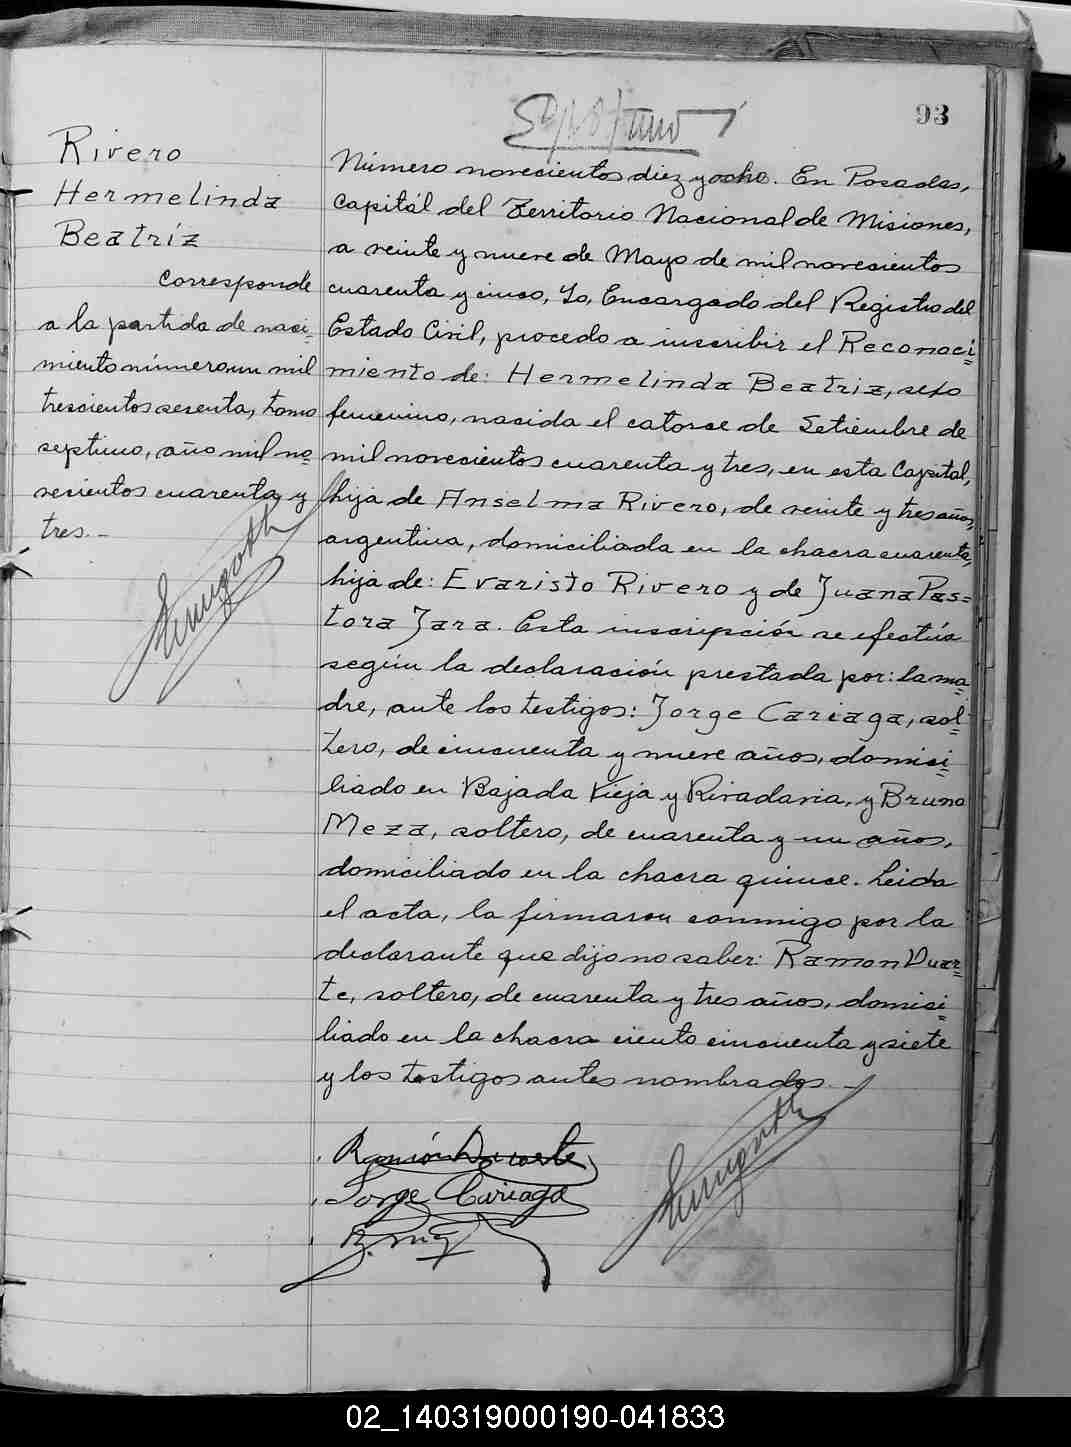 93
Rivero
Hermelinda
Beatríz
corresponde
a la partida de naci=
miento número un mil
trescientos sesenta, tomo
septimo, año mil no=
vecientos cuarenta y
tres.-
Número novecientos diez y ocho. En Posadas,
Capitál del Territorio Nacional de Misiones,
a veinte y nueve de Mayo de mil novecientos
cuarenta y cinco, Yo, Encargado del Registro del
Estado Civil, procedo a inscribir el Reconoci=
miento de: Hermelinda Beatriz, sexo
femenino, nacida el catorce de Setiembre de
mil novecientos cuarenta y tres, en esta Capital,
hija de Anselma Rivero, de veinte y tres años,
argentina, domiciliada en la chacra cuarenta,
hija de: Evaristo Rivero y de Juana Pas=
tora Jara. Esta inscripción se efectúa
según la declaración prestada por: la ma=
dre, ante los testigos: Jorge Cariaga, sol=
tero, de cincuenta y nueve años, domici=
liado en Bajada Vieja y Rivadavia, y Bruno
Meza, soltero, de cuarenta y un años,
domiciliado en la chacra quince. Leida
el acta, la firmaron conmigo por la
declarante que dijo no saber: Ramon Duar=
te, soltero, de cuarenta y tres años, domici=
liado en la chacra ciento cincuenta y siete
y los testigos antes nombrados.-
Ramón Duarte
Jorge Cariaga
02_140319000190-041833